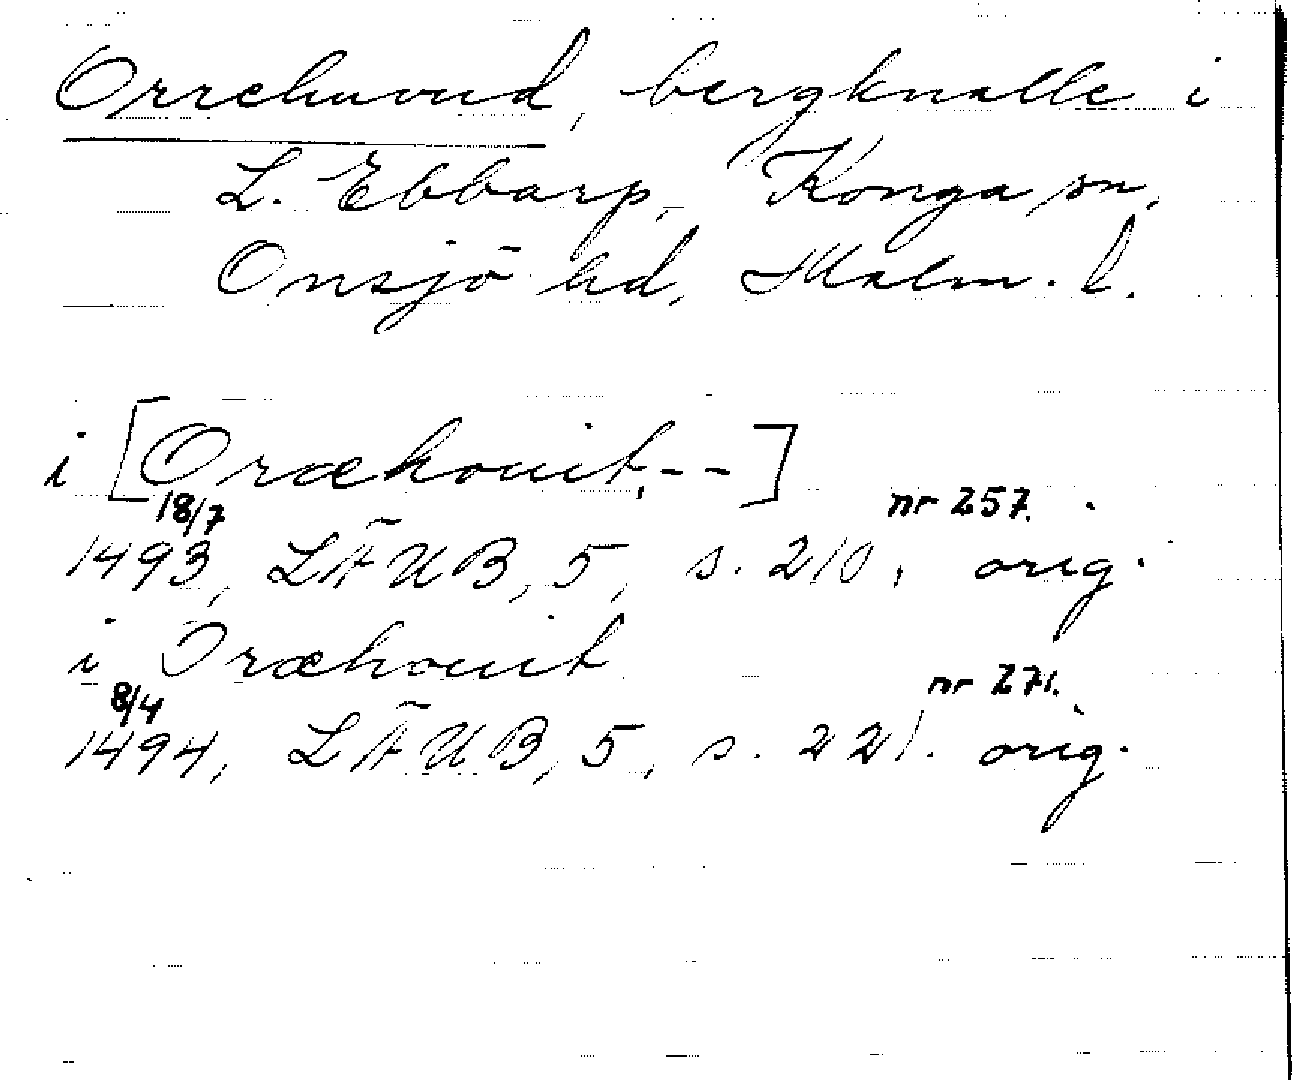 Orrehuvud, bergknalle i
L. Ebbarp, Konga sn,
Onsjö hd, Malm. l.
i [Oræhouit, - - ]
18/7 nr 257.
1493, LÄUB, 5, s. 210, orig.
i Oræhouit
8/4 nr 271.
1494, LÄUB, 5, s. 221. orig.